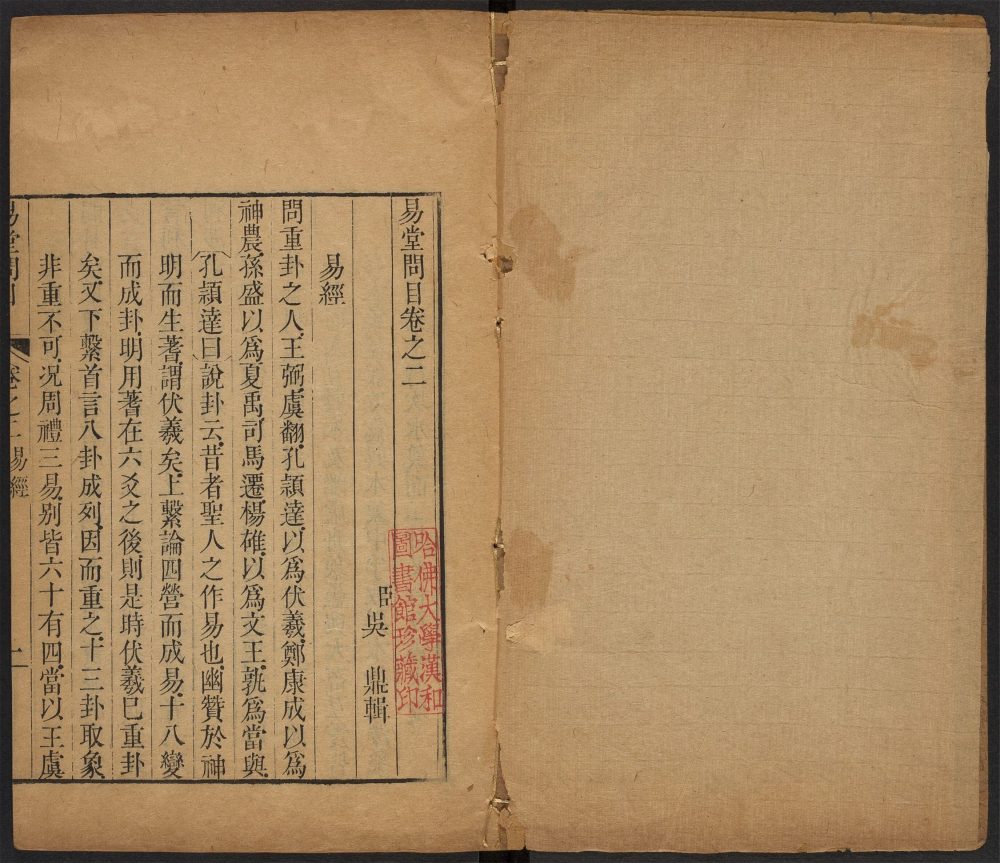 易堂問目卷之二
臣吳 鼎輯
易經
問重卦之人王弼虞翻孔頴達以爲伏羲鄭康成以爲
神農孫盛以爲夏禹司馬遷楊雄以爲文王孰爲當與
孔頴達曰說卦云昔者聖人之作易也幽贊於神
明而生蓍謂伏羲矣上繫論四營而成易十八變
而成卦明用蓍在六爻之後則是時伏羲已重卦
矣又下繫首言八卦成列因而重之十三卦取象
非重不可況周禮三易別皆六十有四當以王虞
易堂問目 卷之二易經 一
哈佛大學漢和
圖書館珍藏印